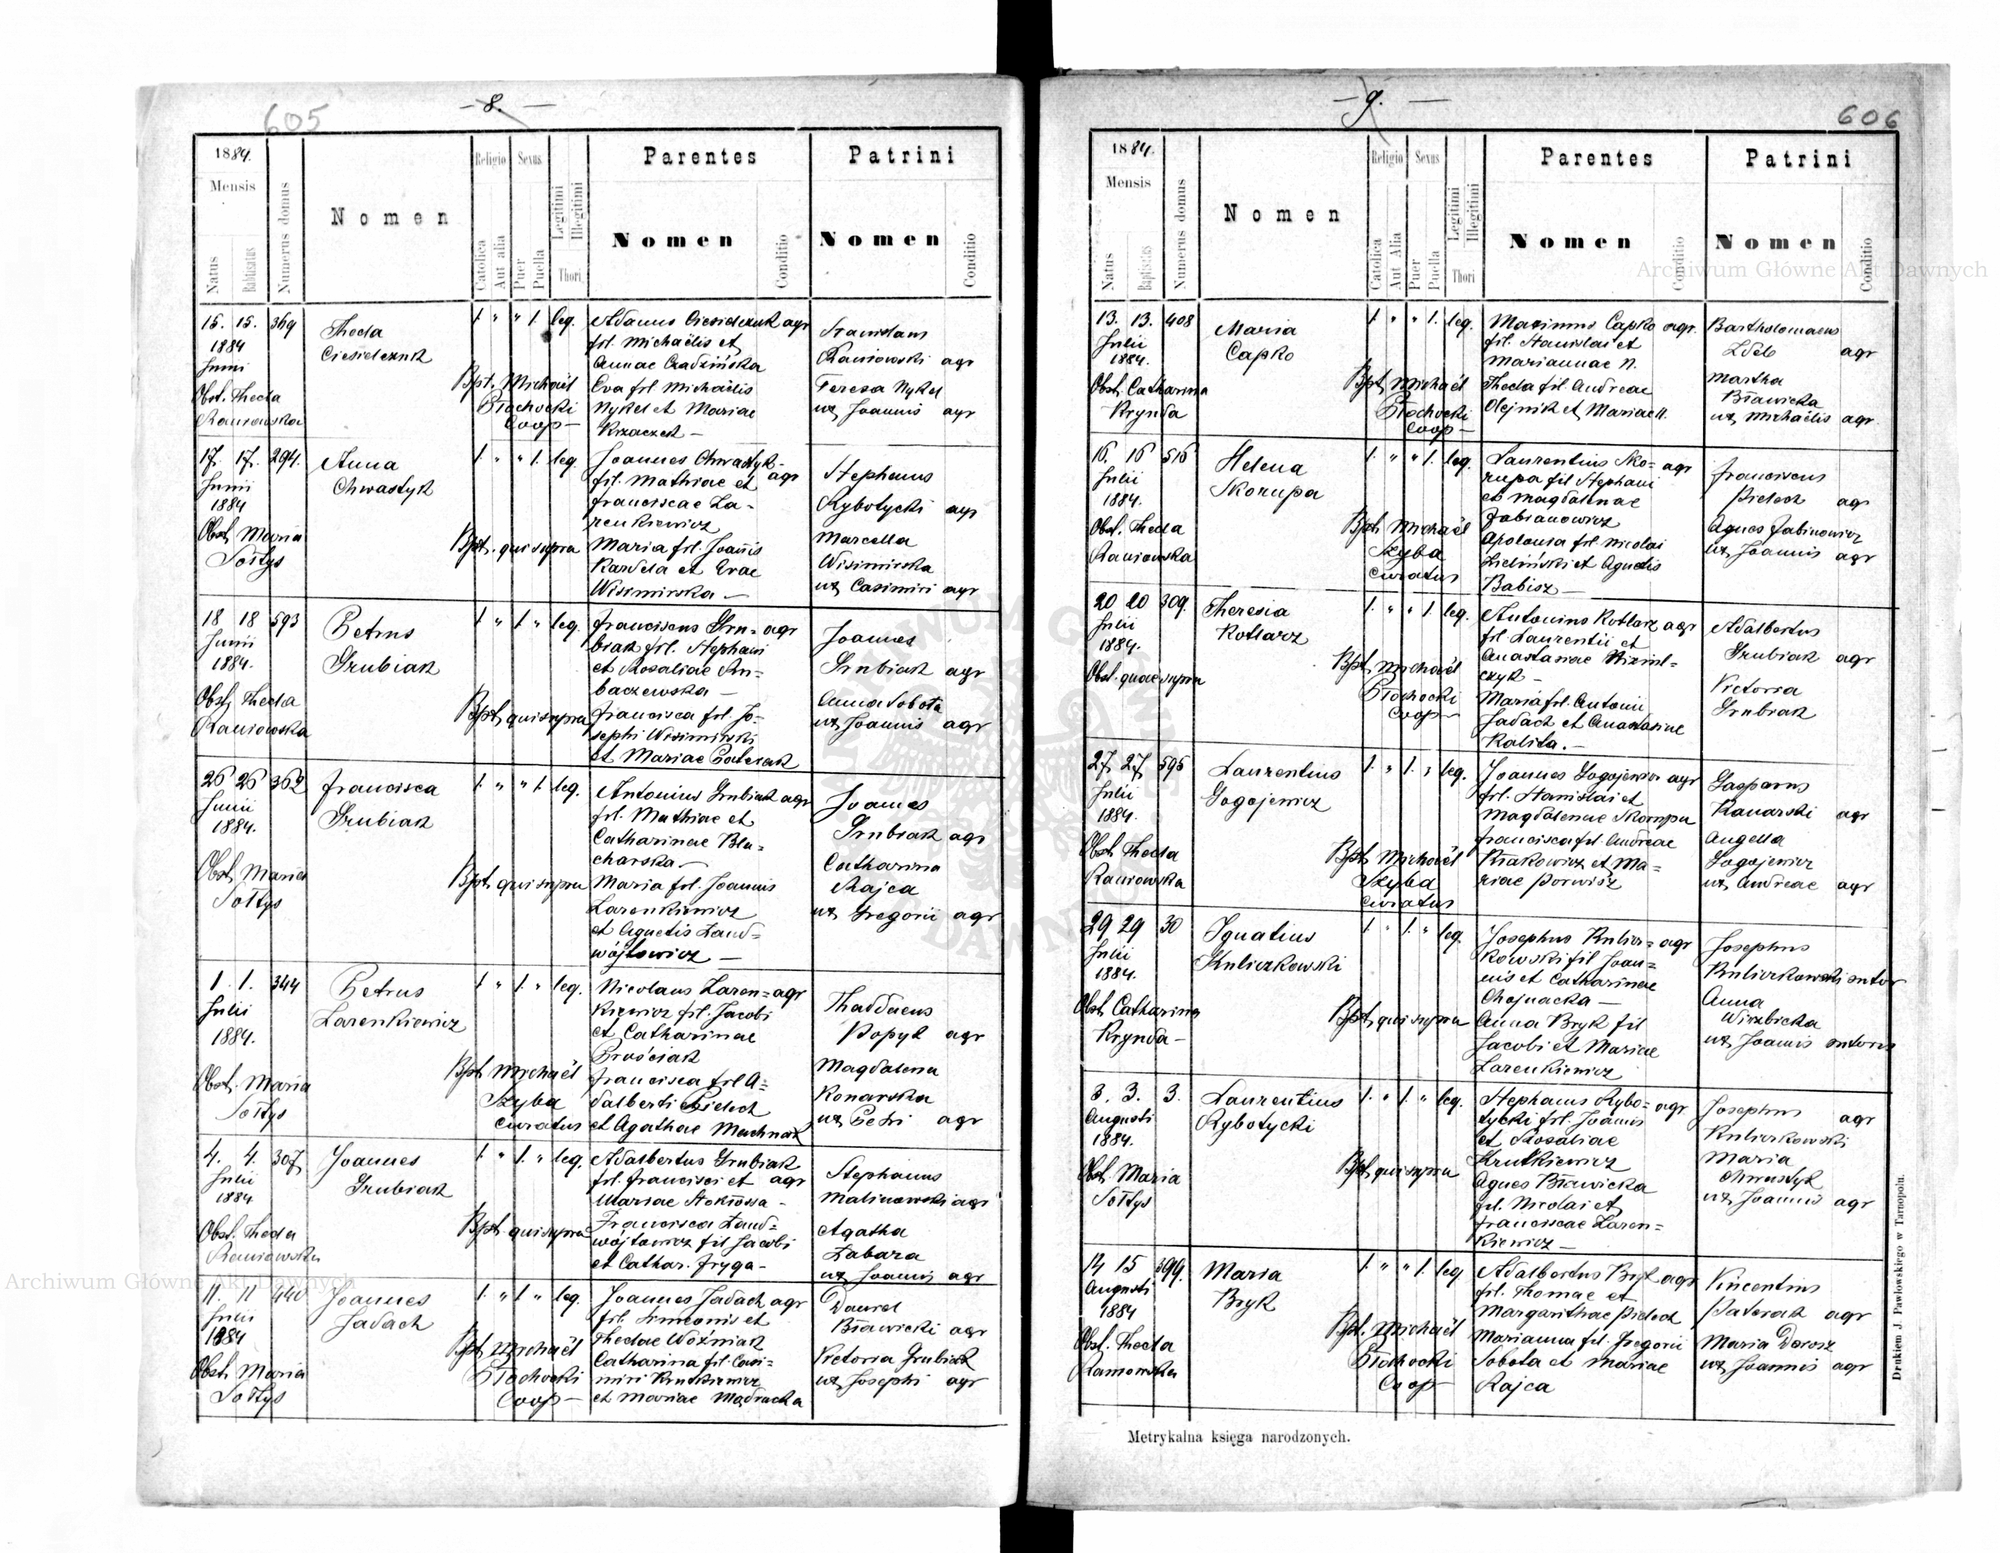 605
- 8. -
1884.
Mensis
Natus
Numerus domus
Nomen
Religio
Catolica
Aut alia
Sexus
Puer
Puella
Legitimi
Illegitimi
Thori
Parentes
Nomen
Conditio
Patrini
Nomen
Conditio
15. 15. 369
1884
Junii
Obst. Thecla
Raniowska
Thecla
Ciesielczuk
1 " " 1. leg.
Bpt. Michaël
Błochocki
Coop-
Adamus Ciesielczuk agr
fil. Michaëlis et
Annae Czadzińska
Eva fil Michaëlis
Nykel et Mariae
Krzaczek -
Stanislaus
Raniowski agr
Teresa Nykel
ux. Joannis agr
17. 17. 294.
Junii
1884
Obst. Maria
Sołtys
Anna
Chwastyk
1. " " 1. leg
Bpt. qui supra
Joannes Chwastyk-
fil. Mathiae et agr
Franciscae La-
renkiewicz
Maria fil. Joannis
Kardela et Evae
Wisimirska -
Stephanus
Rybotycki agr
Marcella
Wisimirska
ux Casimiri agr
18 18 593
Junii
1884.
Obst. Thecla
Raniowska
Petrus
Grubiak
1. " 1. " leg.
Bpt. qui supra
Franciscus Gru= agr
biak fil. Stephani
et Rosaliae
baczewska -
Francisca fil. Jo=
sephi Wisimirski
et Mariae Paterak
Joannes
Grubiak agr
Anna Sobota
ux Joannis agr
26 26 362
Junii
1884.
Obst. Maria
Sołtys
Francisca
Grubiak
1 " " 1. leg.
Bpt. qui supra
Antonius Grubiak agr
fil. Mathiae et
Catharinae Bla=
charska -
Maria fil. Joannis
Larenkiewicz
et Agnetis Land=
wójtowicz -
Joannes
Grubiak agr
Catharina
Rajca
ux Gregorii agr
1. 1. 344
Julii
1884.
Obst. Maria
Sołtys
Petrus
Larenkiewicz
1 " 1. " leg.
Bpt Michaël
Szyba
curatus
Nicolaus Laren= agr
kiewicz fil. Jacobi
et Catharinae
Prościak
Francisca fil A=
dalberti Pieloch
et Agathae Machnak
Thaddaeus
Popyk agr
Magdalena
Konarska
ux Petri agr
4. 4. 307
Julii
1884
Obst. Thecla
Raniowska
Joannes
Grubiak
1 " 1. " leg.
Bpt. qui supra
Adalbertus Grubiak
fil. Francisci et agr
Mariae Stokłosa -
Francisca Land=
wójtowicz fil Jacobi
et Cathar. Fryga -
Stephanus
Malinowski agr
Agatha
Labaza
ux Joannis agr
11. 11 440
Julii
1884
Obst Maria
Sołtys
Joannes
Jadach
1. " 1 " leg.
Bpt. Michaël
Błochocki
Coop-
Joannes Jadach agr
fil. Simeonis et
Theclae Woźniak
Catharina fil. Casi=
miri Krutkiewicz
et Mariae Mądracka
Daniel
Bławicki agr
Victoria Grubiak
ux Josephi agr
606
- 9. -
1884.
Mensis
Natus
Baptisatus
Numerus domus
Nomen
Religio
Catolica
Aut Alia
Sexus
Puer
Puella
Legitimi
Illegitimi
Thori
Parentes
Nomen
Conditio
Patrini
Nomen
Conditio
13. 13. 408
Julii
1884.
Obst. Catharina
Krynda
Maria
Capko
1 " " 1. leg.
Bpt. Michaël
Błochocki
Coop-
Maximus Capko agr.
fil. Stanislai et
Mariannae N.
Thecla fil. Andreae
Olejnik et Mariae N.
Bartholomaeus
Zdeb agr
Martha
Bławicka
ux Michaëlis agr
16. 16 516
Julii
1884.
Obst. Thecla
Raniowska
Helena
Skorupa
1. " " 1. leg.
Bpt. Michaël
Szyba
curatus
Laurentius Sko= agr
rupa fil Stephani
et Magdalenae
Fabianowicz
Apolonia fil. Nicolai
Zielinski et Agnetis
Babisz -
Franciscus
Pieloch agr
Agnes Fabinowicz
ux Joannis agr
20 20 309.
Julii
1884.
Obst. quae supra
Theresia
Kotlarz
1. " " 1 leg.
Bpt. Michaël
Błochocki
Coop-
Antonius Kotlarz agr
fil. Laurentii et
Anastasiae
czyk -
Maria fil. Antonii
Jadach et Anastasiae
Kalita. -
Adalbertus
Grubiak agr
Victoria
Grubiak
27. 27. 595
Julii
1884.
Obst Thecla
Raniowska
Laurentius
Gogojewicz
1. " 1. " leg.
Bpt. Michaël
Szyba
curatus
Joannes Gogojewicz agr
fil. Stanislai et
Magdalenae Skorupa
Francisca fil. Andreae
Krakowicz et Ma=
riae Porwisz
Gasparus
Kanarski agr
Angella
Gogojewicz
ux Andreae agr
29 29 30
Julii
1884.
Obst Catharina
Krynda -
Ignatius
Kuliczkowski
1 " 1. " leg.
Bpt. qui supra
Josephus Kulicz= agr
kowski fil Joan=
nis et Catharinae
Chojnacka -
Anna Bryk fil
Jacobi et Mariae
Larenkiewicz
Josephus
Kuliczkowski sutor
Anna
Wirzbicka
ux Joannis sutoris
3. 3. 3.
Augusti
1884.
Obst Maria
Sołtys
Laurentius
Rybotycki
1. " 1. " leg.
Bpt. qui supra
Stephanus Rybo= agr
tycki fil. Joannis
et Rosaliae
Krutkiewicz
Agnes Bławicka
fil. Nicolai et
Franciscae Laren=
kiewicz -
Josephus agr
Kuliczkowski
Maria
Chwastyk
ux Joannis agr
14 15 599.
Augusti
1884
Obst. Thecla
Raniowska
Maria
Bryk
1. " " 1. leg
Bpt. Michaël
Błochocki
Coop-
Adalbertus Bryk agr
fil. Thomae et
Margarithae Pieloch
Marianna fil. Gregorii
Sobota et Mariae
Rajca
Vincentius
Paterak agr
Maria Dorosz
ux Joannis agr
Metrykalna księga narodzonych.
Drukiem J. Pawłowskiego w Tarnopolu.
Archiwum Główne Akt Dawnych
Archiwum Główne Akt Dawnych